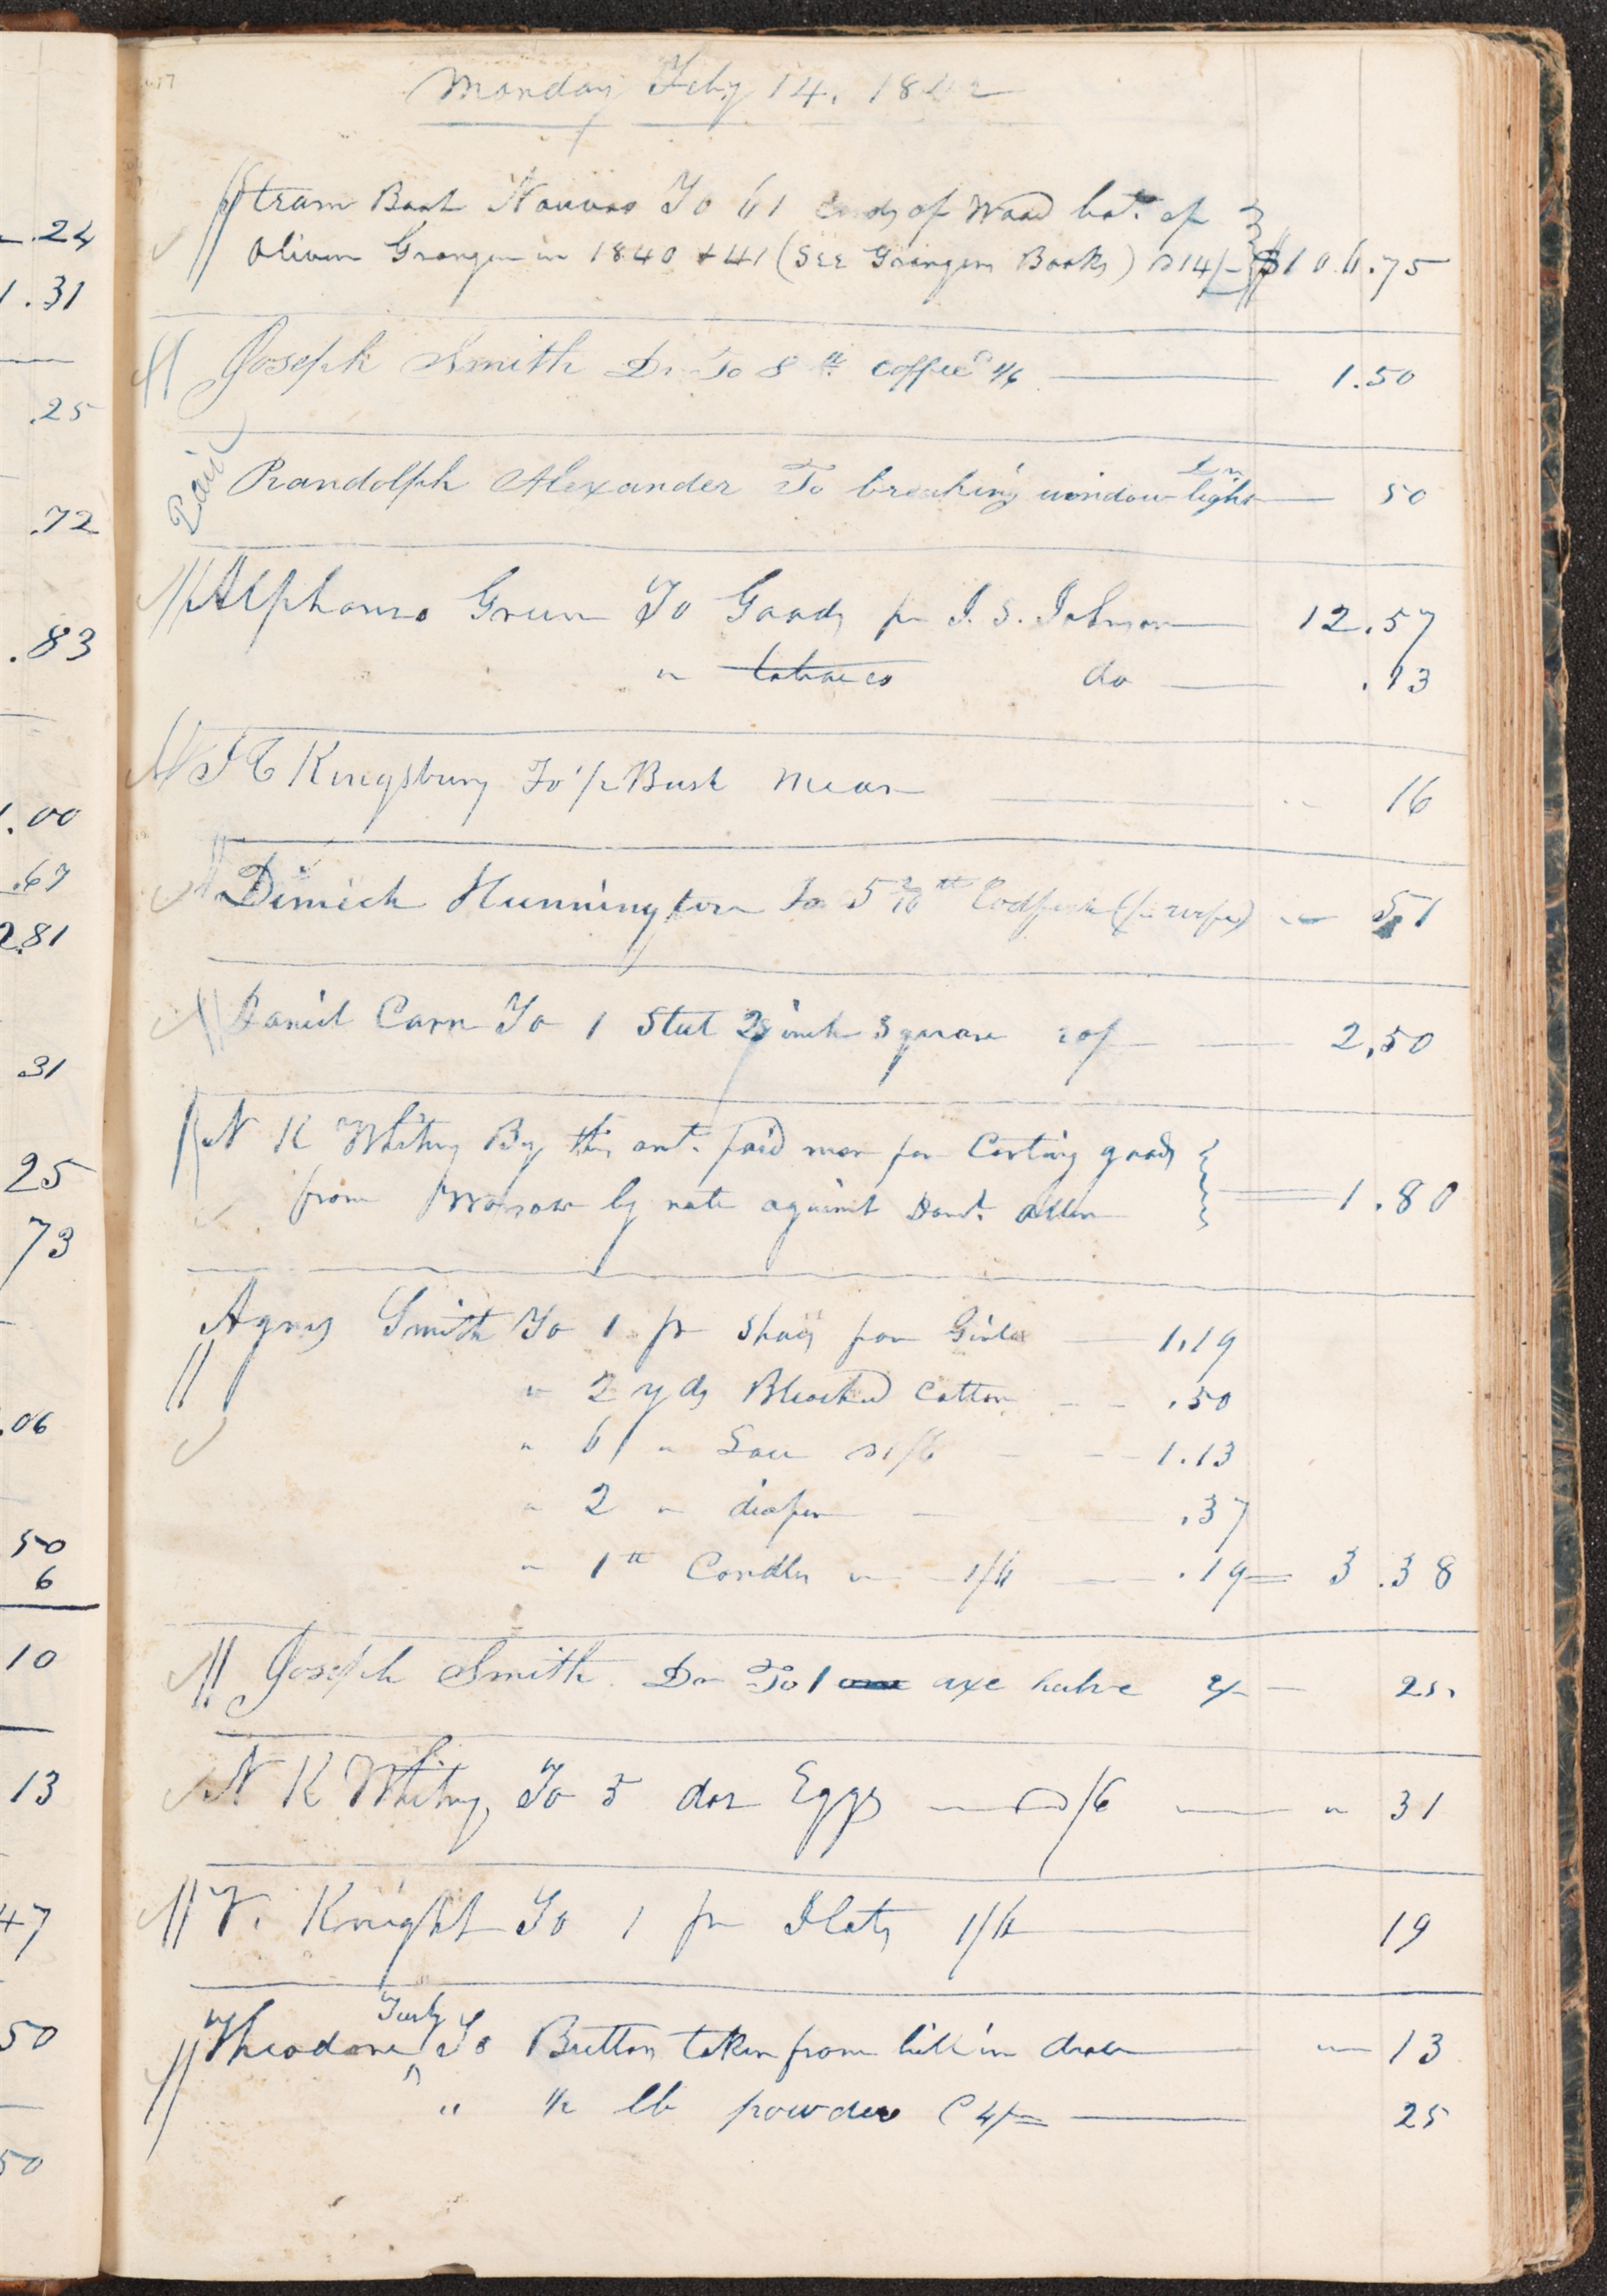 .24
1.31
.25
.72
.83
1.00
.67
2.81
31
25
73
.06
50
6
10
13
47
50
50
Monday Feby 14, 1842
Steam Boat Nauvoo To 61 cords of Wood bot. of
Oliver Granger in 1840 & 41 (See Grangers Books) 14/- $106.75
Joseph Smith Dr To 8 lb coffee 1/6 1.50
Paid
Randolph Alexander To breaking window light 50
Alphonzo Green To Goods pr J. S. Johnson 12.57
" tobacco do .13
J C Kingsbury To 1/2 Bush Mear 16
Dimick Hunnington To 5 2/10 lb Codfish (pr wife) " 51
Daniel Carn To 1 Steel 2 inch Square 20/- 2,50
N K Whitney By this amt. paid man for Carting goods
from Warsaw by note against Danl. Allen 1.80
Agnes Smith To 1 pr Shoes for Girles 1.19
" 2 yds Bleached Cotton .50
" 6 " Lace 1/6 1.13
" 2 " diaper .37
" 1 lb Candles " 1/6 .19 = 3.38
Joseph Smith Dr To 1 axe halve 2/- 25
N K Whitney, To 5 doz Eggs /6 " 31
V. Knight To 1 pr Flats 1/6 19
Theodore Turly To Button taken from bill in draw " 13
" 1/2 lb powder @ 4/- 25